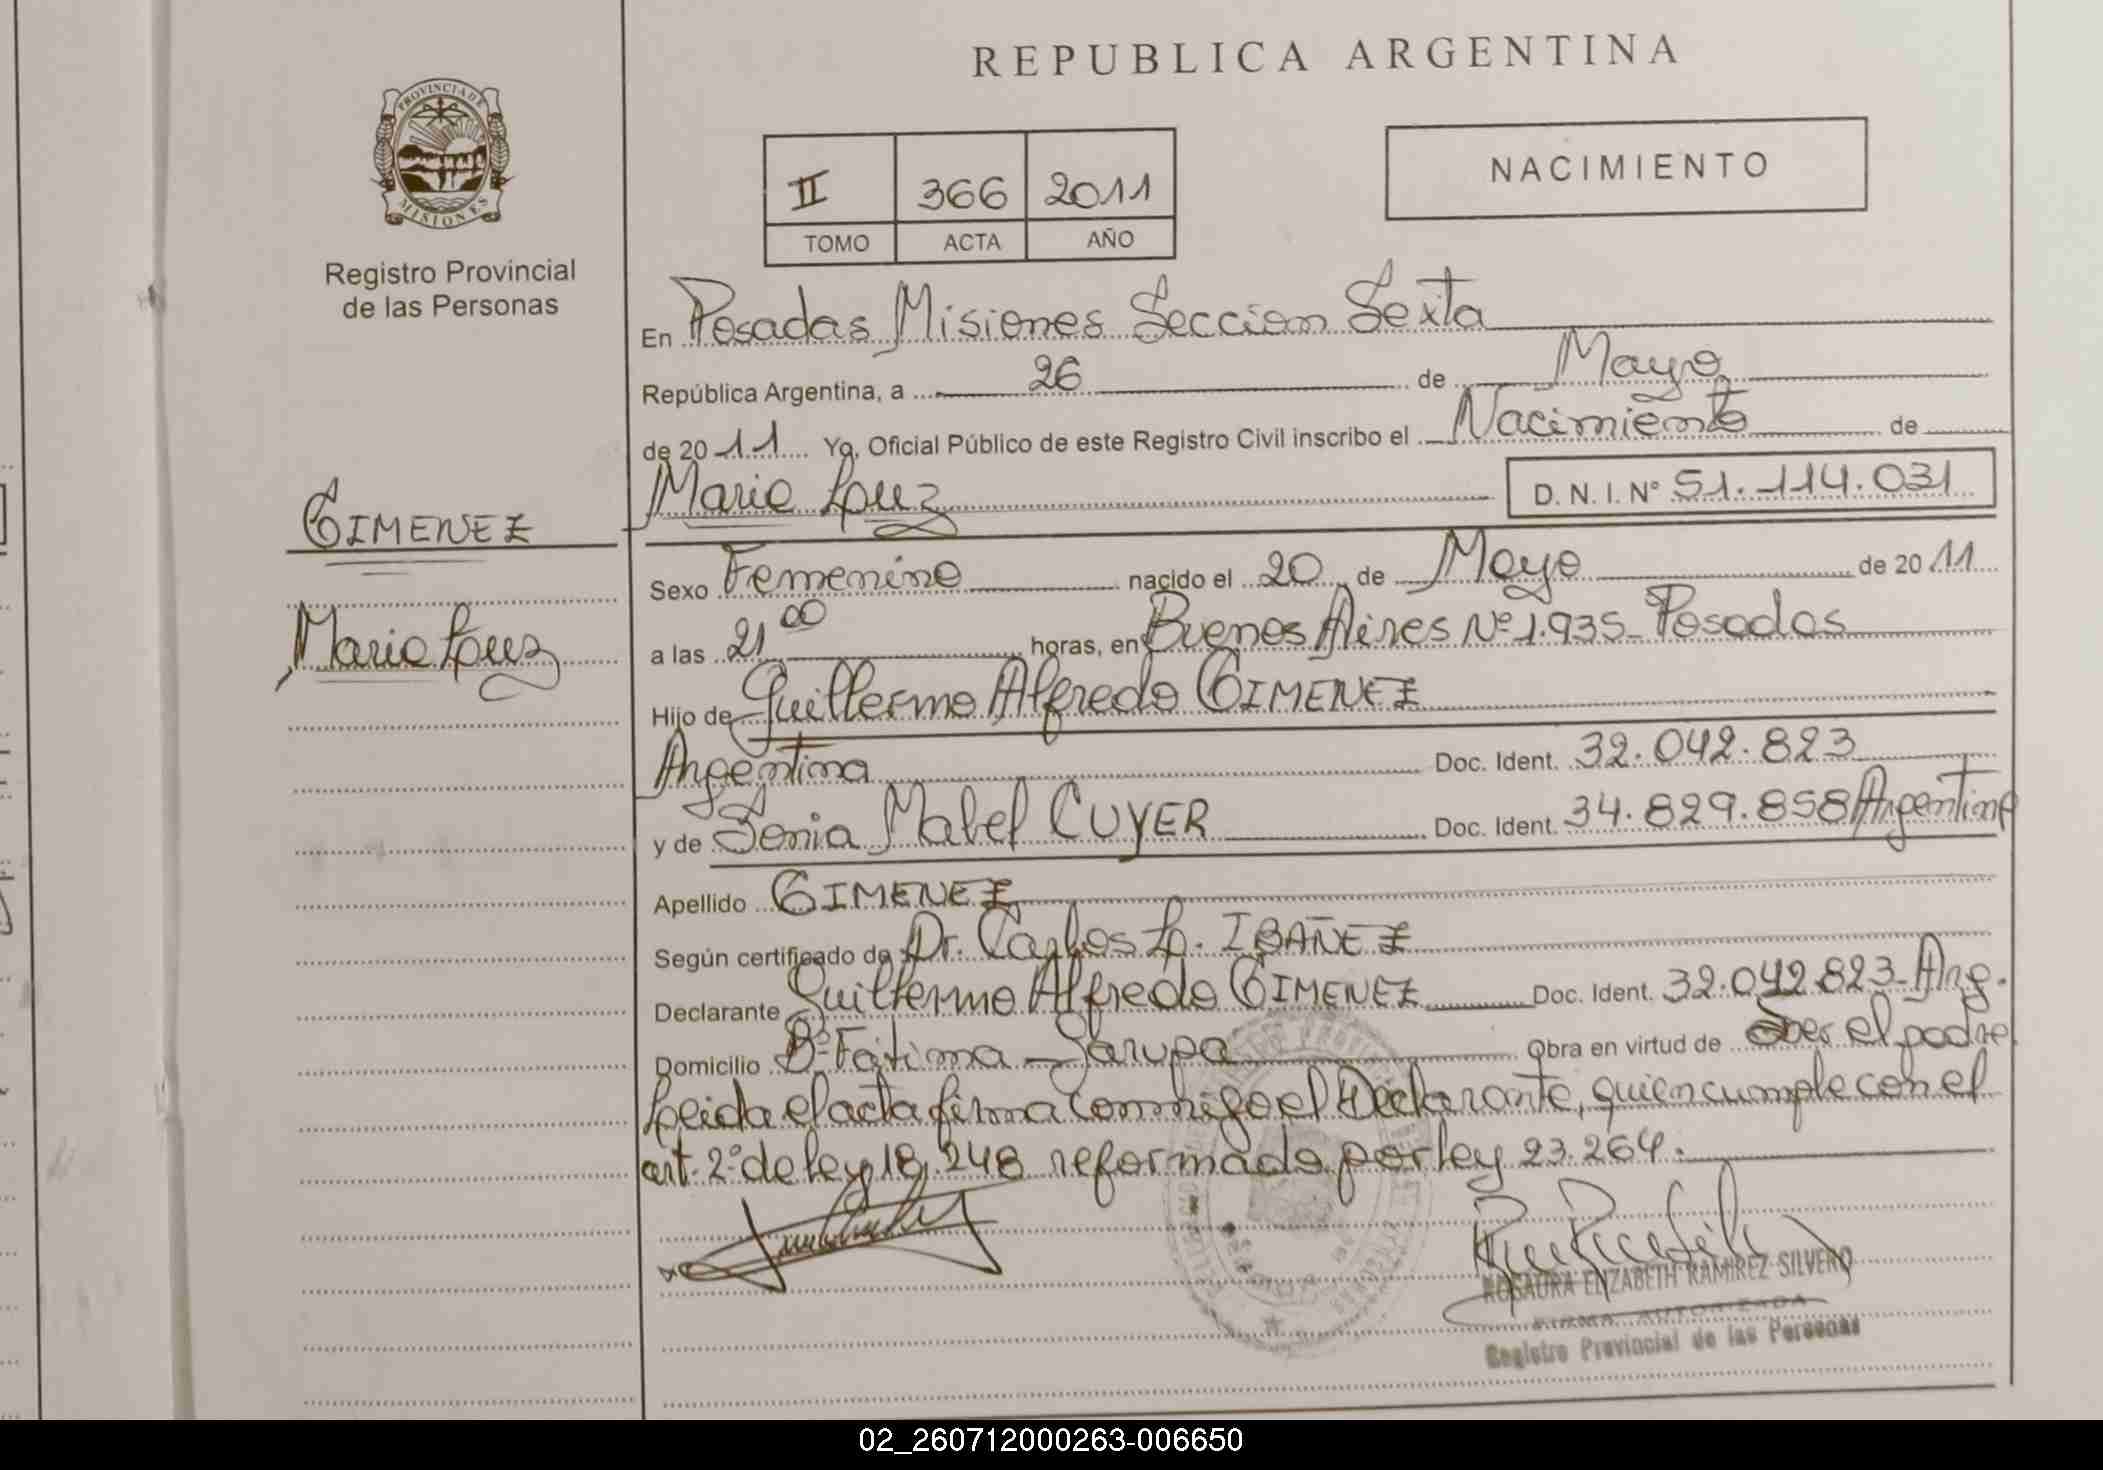 REPUBLICA ARGENTINA
PROVINCIA DE
MISIONES
Registro Provincial
de las Personas
NACIMIENTO
II 366 2011
TOMO ACTA AÑO
En Posadas Misiones Seccion Sexta
República Argentina, a 26 de Mayo
de 2011 Yo, Oficial Público de este Registro Civil inscribo el Nacimiento de
Maria Luz D. N. I. Nº 51.114.031
GIMENEZ
Maria Luz
Sexo Femenino nacido el 20 de Mayo de 2011
a las 21 00 horas, en Buenos Aires Nº 1.935 - Posadas
Hijo de Guillermo Alfredo GIMENEZ
Argentina Doc. Ident. 32.042.823
y de Sonia Mabel CUYER Doc. Ident. 34.829.858 Argentina
Apellido GIMENEZ
Según certificado de Dr. Carlos L. IBAÑEZ
Declarante Guillermo Alfredo GIMENEZ Doc. Ident. 32.042.823 - Arg.
Domicilio Bº Fátima - Garupa Obra en virtud de ser el padre
Leida el acta firma conmigo el Declarante, quien cumple con el
art. 2º de ley 18.248 reformado por ley 23.264.
ROSAURA ELIZABETH RAMIREZ SILVERO
FIRMA AUTORIZADA
Registro Provincial de las Personas
02_260712000263-006650